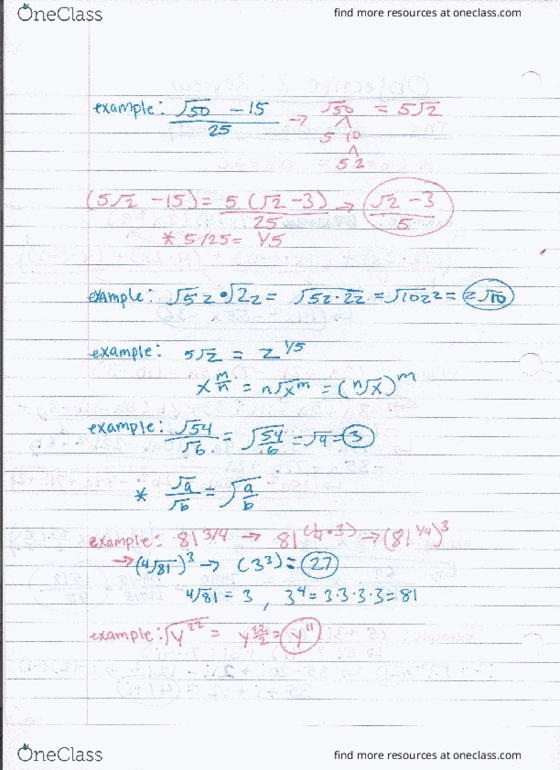 OneClass find more resources at oneclass.com
example: √50 - 15 / 25 → √50 = 5√2
5 10
5 2
(5√2 - 15) = 5(√2 - 3) / 25 → √2 - 3 / 5
* 5/25 = 1/5
example: √5z • √2z = √5z·2z = √10z² = z√10
example: 5√z = z^1/5
x^m/n = n√x^m = (n√x)^m
example: √54 / √6 = √54/6 = √9 = 3
* √a / √b = √a/b
example: 81^3/4 → 81^(1/4•3) → (81^1/4)^3
→ (4√81)^3 → (3^3) = 27
4√81 = 3 , 3^4 = 3·3·3·3 = 81
example: √y^22 = y^22/2 = y^11
OneClass find more resources at oneclass.com